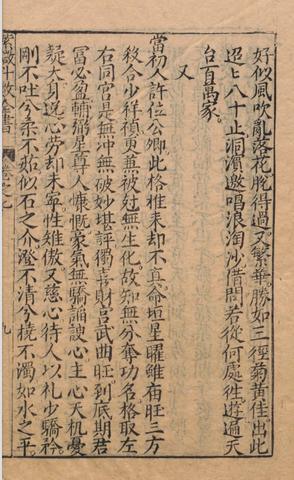 好似風吹亂落花脫得過又繁華勝如三徑菊黃佳出此
迢〻八十止洞濱邀唱浪淘沙借問若從何處徃遊遍天
台百萬家
又
當初人許位公卿此格推來却不真命垣星曜雖庙旺三方
殺合少祥禎更兼被刼無生化故知無分奪功名格取左
右同宫是無沖無破妙堪評獨喜財宫武曲旺到底期君
冨必盈輔弼星尊人慷慨豪氣無驕謟諛心主心天机憂
疑大身逸心劳却未寧性雖傲又慈心待人以礼少驕矜
剛不吐兮柔不茹似石之介澄不清兮撓不濁如水之平
紫微斗数全書
九